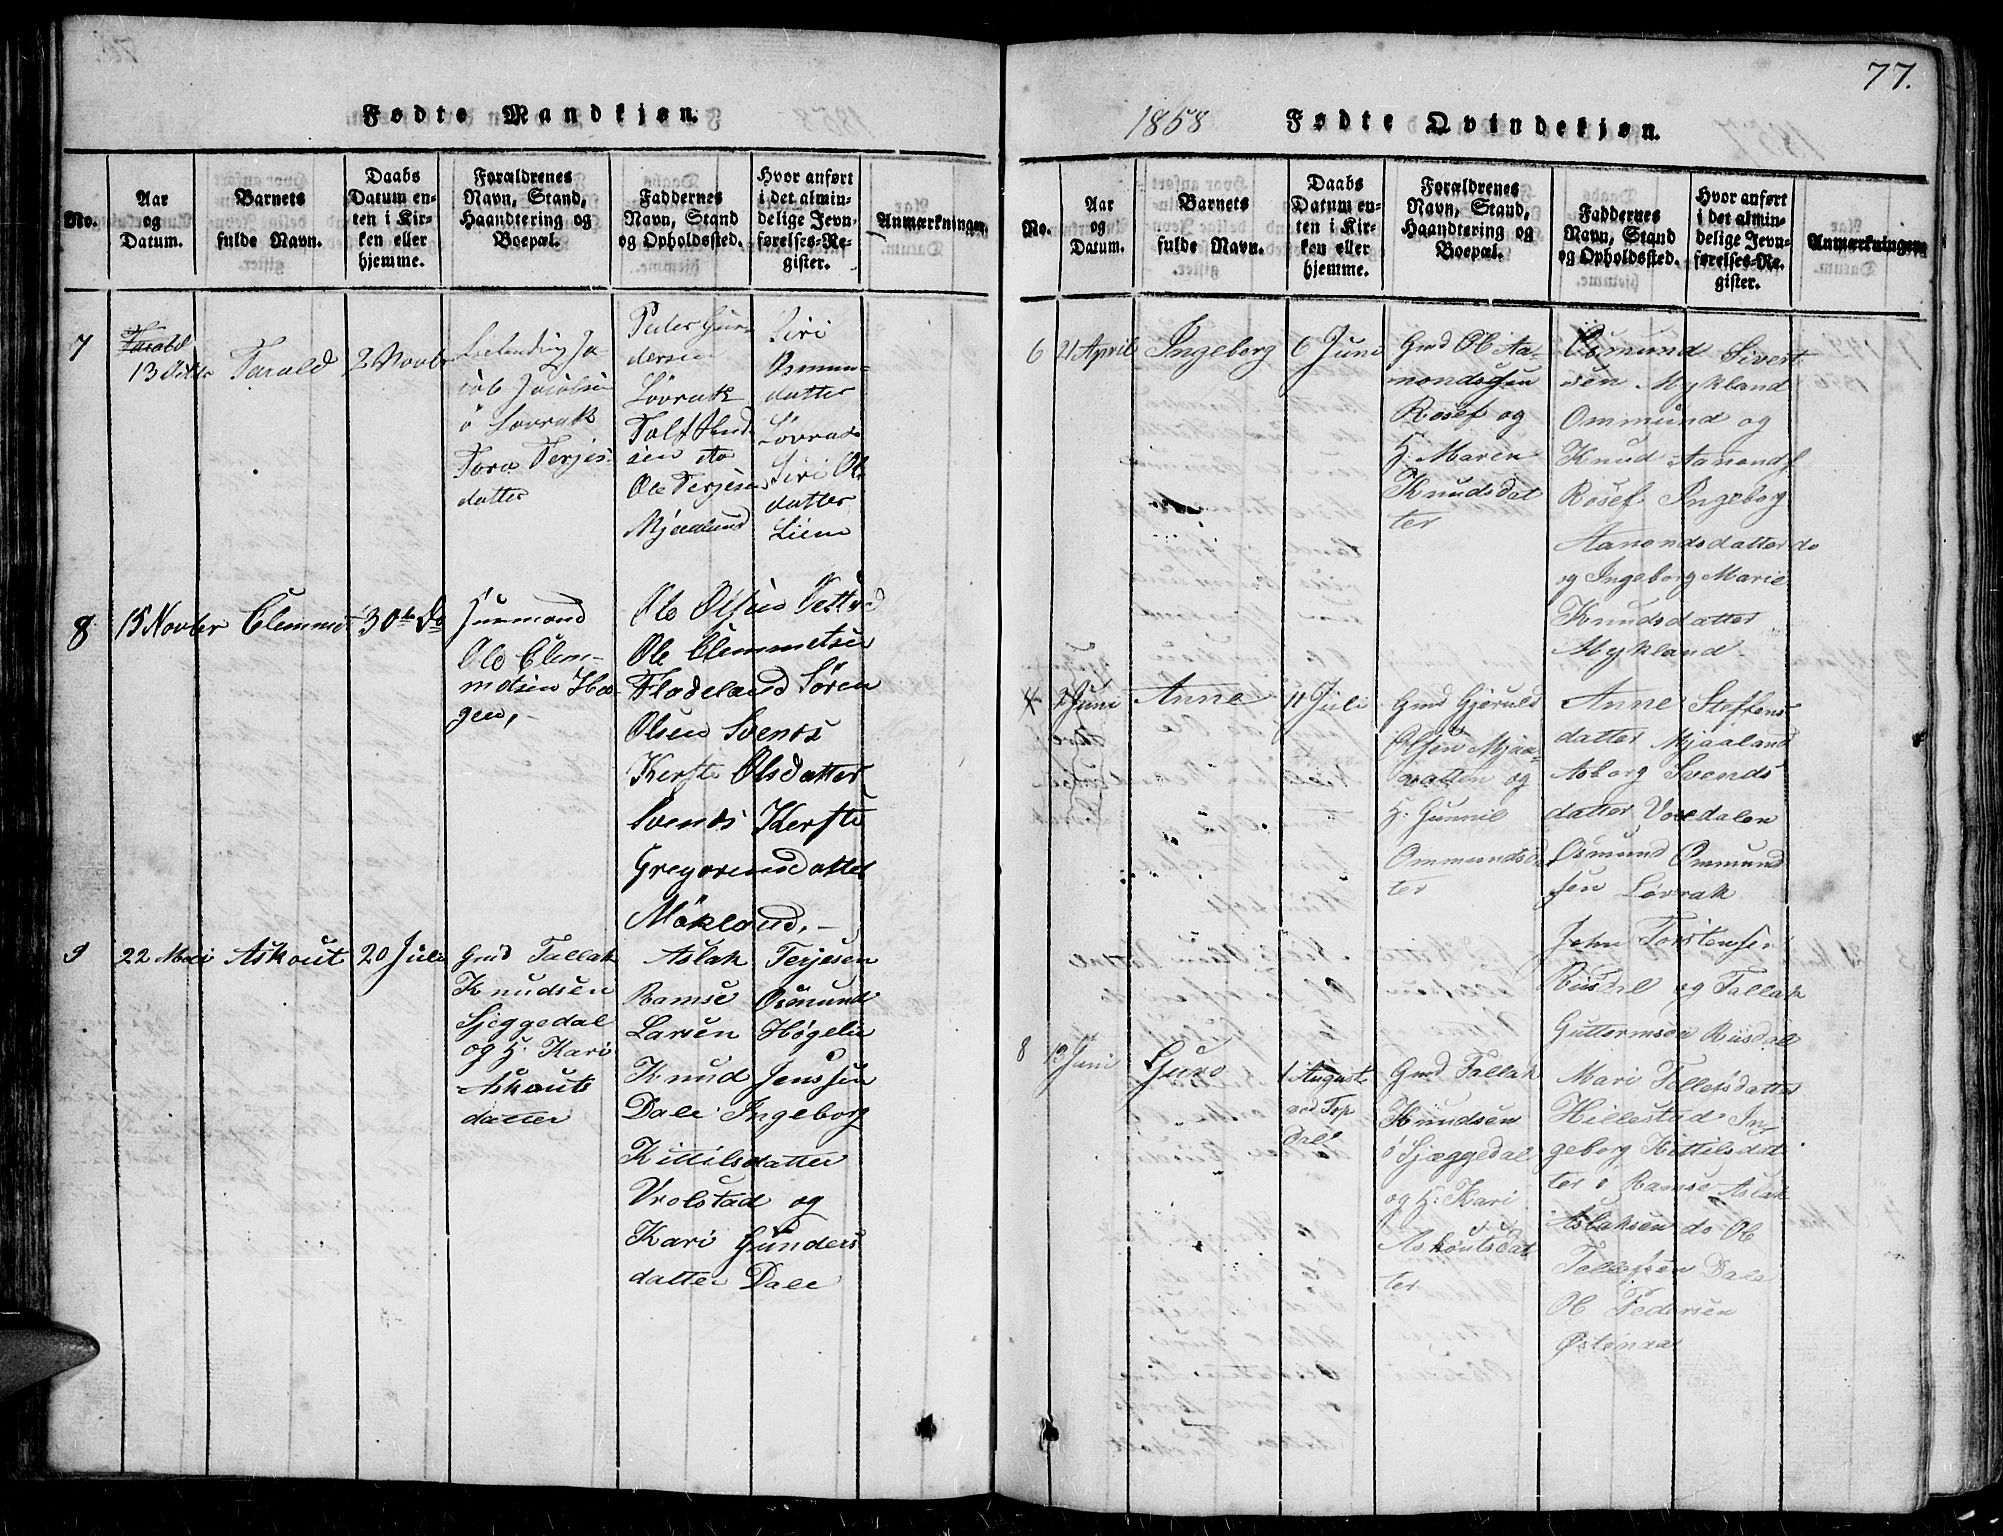 Fødte Mandkjøn.
No.
Aar
og
Datum.
Barnets
fulde Navn.
Daabs
Datum en-
ten i Kir-
ken eller
hjemme.
Forældrenes
Navn, Stand,
Haandtering og
Boepæl.
Faddernes
Navn, Stand
og Opholdssted.
Hvor anført
i det almin-
delige Jevn-
førelses-Re-
gister.
Anmærkninger.
7
13
Tarald
2 Novbr
Ja-
cob Jacobsen
Lovrak
Tora Terjes-
datter
Peder Gun-
dersen
Lövrak
Ole Terjesen
Mjaaland
Siri
Osmun-
datter
Lövrak
Siri Ols
datter
Liene
8
15 Novber
Clemmet
30te Do
Huusmand
Ole Clem-
metsen Ha-
gen,
Ole Olsen
Ole Clemmetsen
Fladeland Sören
Olsen Svenos
Kerste Olsdatter
Svenos Kerste
Gregoriusdatter
Mökland.
9
22 Mai
Askout
20 Juli
Gmd Tallak
Knudsen
Sjeggedal
og H. Kari
Askouts
datter
Aslak Terjesen
Ramse Osmund
Larsen Høgelie
Knud Jenssen
Dale Ingeborg
Kittilsdatter
Vrolstad og
Kari Gunders
datter Dale
77.
1858
Fødte Qvindekjøn.
No.
Aar
og
Datum.
Barnets
fulde Navn.
Daabs
Datum en-
ten i Kir-
ken eller
hjemme.
Forældrenes
Navn, Stand,
Haandtering og
Boepæl.
Faddernes
Navn, Stand
og Opholdssted.
Hvor anført
i det almin-
delige Jevn-
førelses-Re-
gister.
Anmærkninger.
6
21 April
Ingeborg
6 Juni
Gmd Ol Aa-
mondssen
Rosef og
H. Maren
Knudsdat
ter
Osmund Sivert
sen Mykland
Ommund og
Knud Aanonds
Rosef Ingeborg
Aanondsdatter do
og Ingeborg Marie
Knudsdatter
Mykland.
Juni
Anne
11 Juli
Gmd Gjeruld
Olsen Mjaa-
vatten og
H. Gunnil
Ommundsda
ter
Anne Steffens
datter Mjaaland
Asborg Svends
datter Voredalen
Osmund Ommund
sen Lövrak
John Torstensen
Risdal og Tallak
Guttormsen Risdal
8
13 Juni
Guro
1 August
ved Top
dal
Gmd Tallak
Knudsen
Sjæggedal
og H. Kari
Askoutsdat
ter
Mari Tellefsdatter
Hillestad In-
geborg Kittilsdat
ter i Ramse Aslak
Aslaksen do Ol
Tellefsen Dale
Ol Pedersen
Østenaa